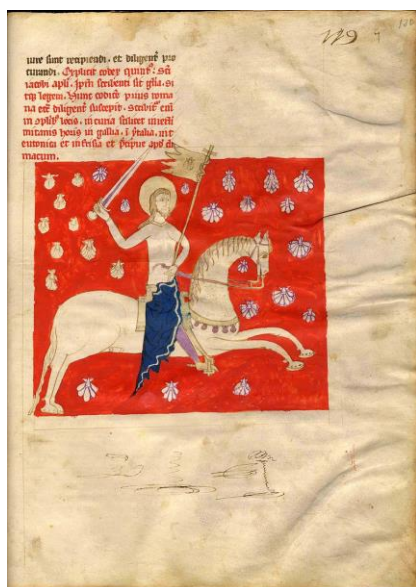 119
120
iure sunt recipiendi, et diligent pro
curandi. Explicit codex quint'. Sci
iacobi apli. Ipm scribenti sit gla. si
tqi legem. Hunc codicē prius roma
na ecc diligent suscepit. Scribit eni
in locis. in curia scilicet
mitanis horis in gallia. i ytalia. in t
eutonica et in frisia et precipue apd
macum.